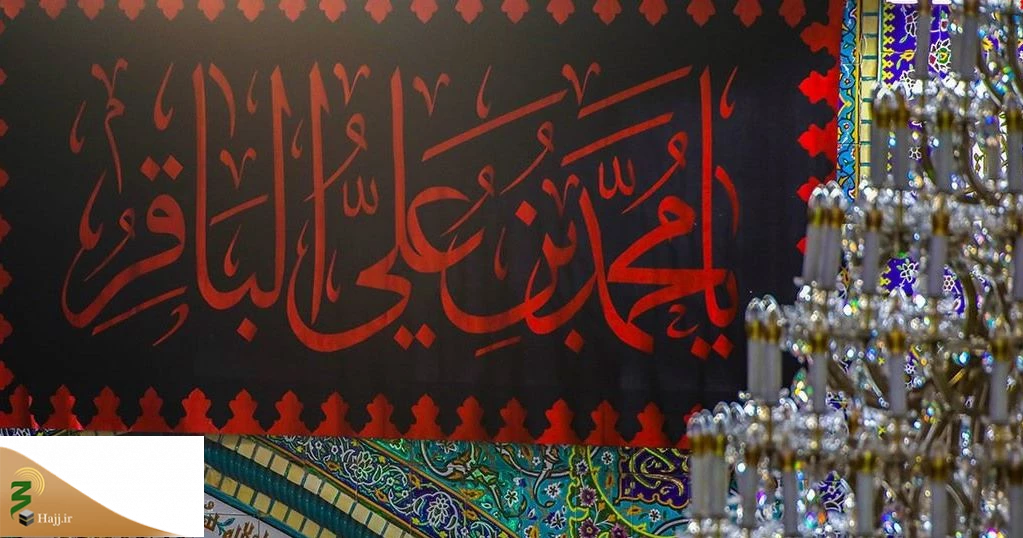 يا محمد بن علي الباقر
Hajj.ir